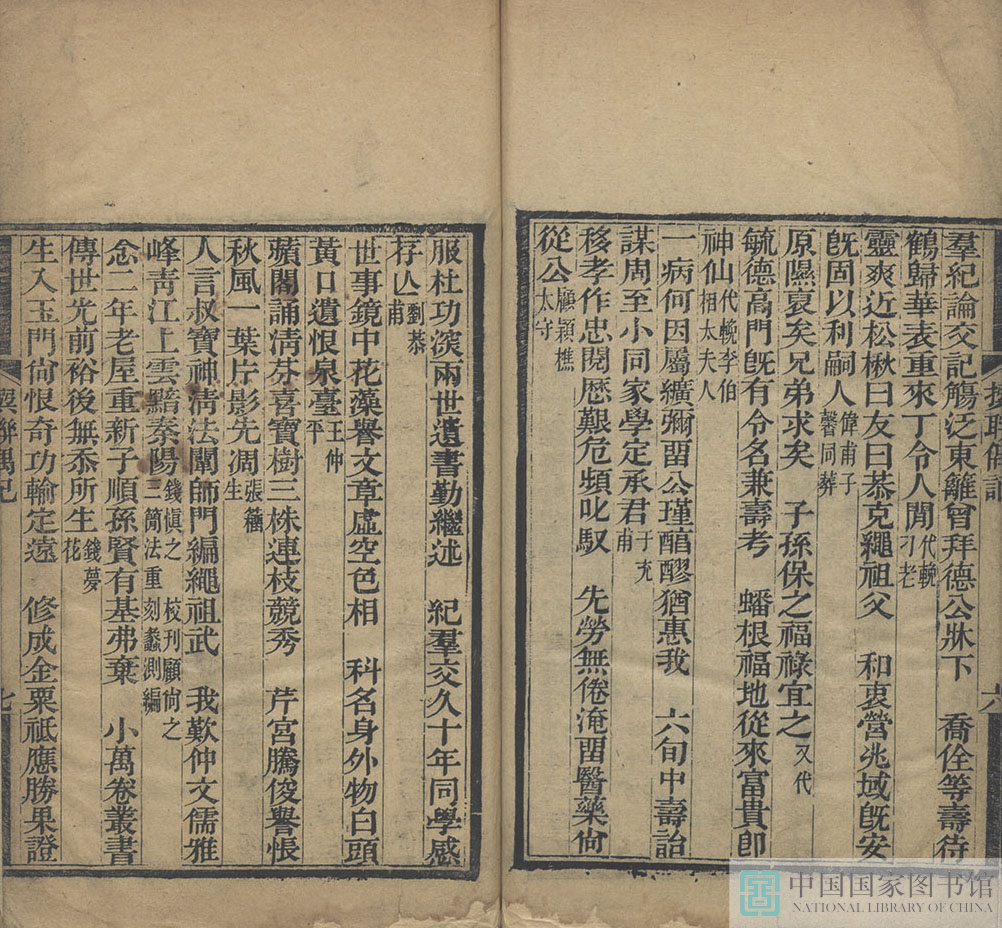 羣紀論交記觴泛東籬曾拜德公牀下　喬佺等壽待
鶴歸華表重來丁令人閒代輓刁老
靈爽近松楸曰友曰恭克繩祖父　和衷營兆域旣安
旣固以利嗣人偉甫子馨同葬
原隰裒矣兄弟求矣　子孫保之福祿宜之又代
毓德高門旣有令名兼壽考　蟠根福地從來富貴卽
神仙代輓李伯相太夫人
一病何因屬纊彌畱公瑾醕醪猶惠我　六旬中壽詒
謀周至小同家學定承君于充甫
移孝作忠閱歷艱危頻叱馭　先勞無倦淹畱醫藥尙
從公顧穎樵太守
揳聨偶記
六
服杜功深兩世遺書勤繼述　紀羣交久十年同學感
存亾劉恭甫
世事鏡中花藻譽文章虛空色相　科名身外物白頭
黃口遺恨泉臺王仲平
蘋閣誦淸芬喜寶樹三株連枝競秀　芹宮騰俊譽悵
秋風一葉片影先凋張生
人言叔寶神淸法闡師門編繩祖武　我歎仲文儒雅
峰靑江上雲黯泰陽錢愼之校刊顧尙之三簡法重刻蠡測編
念二年老屋重新子順孫賢有基弗棄　小萬卷叢書
傳世光前裕後無忝所生錢夢花
生入玉門尙恨奇功輸定遠　修成金粟祗應勝果證
聨偶記
七
中国国家图书馆
NATIONAL LIBRARY OF CHINA